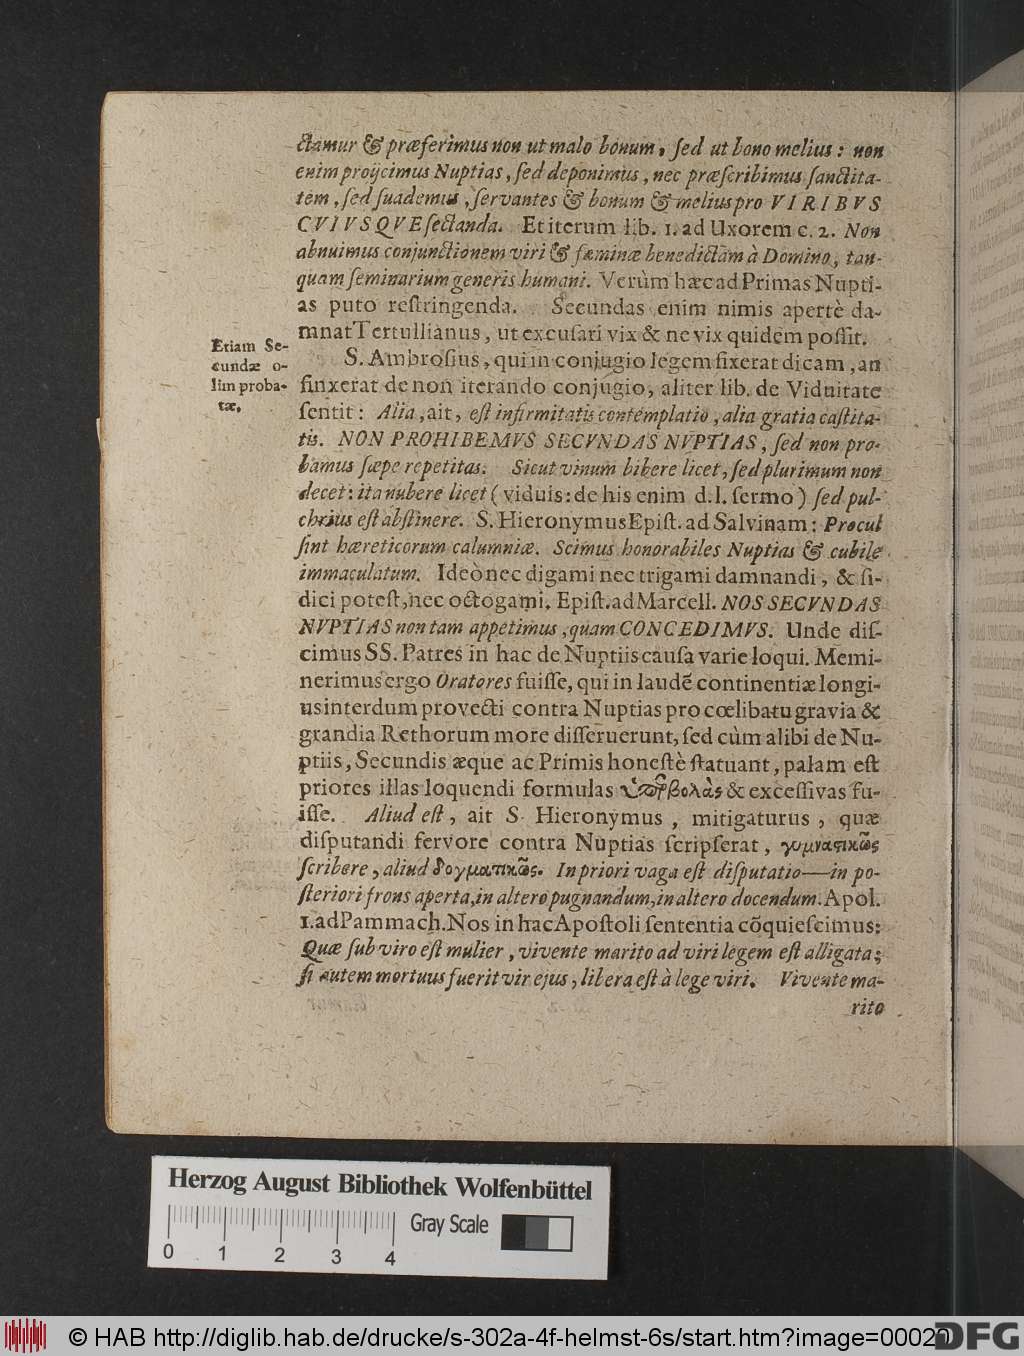 ctamur & præferimus non ut malo bonum, ſed ut bono melius: non
enim proijcimus Nuptias, ſed deponimus, nec præſcribimus ſanctita-
tem, ſed ſuademus, ſervantes & bonum & melius pro VIRIBVS
CVIVSQVE ſectanda. Et iterum lib. 1. ad Uxorem c. 2. Non
abnuimus conjunctionem viri & fæminæ benedictam à Domino, tan-
quam ſeminarium generis humani. Verùm hæc ad Primas Nupti-
as puto reſtringenda. Secundas enim nimis apertè da-
mnat Tertullianus, ut excuſari vix & ne vix quidem poſſit.
Etiam Se-
cundæ o-
lim proba-
tæ.
S. Ambroſius, qui in conjugio legem fixerat dicam, an
finxerat de non iterando conjugio, aliter lib. de Viduitate
ſentit: Alia, ait, eſt infirmitatis contemplatio, alia gratia caſtita-
tis. NON PROHIBEMVS SECVNDAS NVPTIAS, ſed non pro-
bamus ſæpe repetitas. Sicut vinum bibere licet, ſed plurimum non
decet: ita nubere licet (viduis: de his enim d. l. ſermo) ſed pul-
chrius eſt abſtinere. S. Hieronymus Epiſt. ad Salvinam: Procul
ſint hæreticorum calumniæ. Scimus honorabiles Nuptias & cubile
immaculatum. Ideò nec digami nec trigami damnandi, & ſi-
dici poteſt, nec octogami. Epiſt. ad Marcell. NOS SECVNDAS
NVPTIAS non tam appetimus, quam CONCEDIMVS. Unde diſ-
cimus SS. Patres in hac de Nuptiis cauſa varie loqui. Memi-
nerimus ergo Oratores fuiſſe, qui in laudẽ continentiæ longi-
us interdum provecti contra Nuptias pro cœlibatu gravia &
grandia Rethorum more diſſeruerunt, ſed cùm alibi de Nu-
ptiis, Secundis æque ac Primis honeſtè ſtatuant, palam eſt
priores illas loquendi formulas ὑπερβολὰς & exceſſivas fu-
iſſe. Aliud eſt, ait S. Hieronymus, mitigaturus, quæ
diſputandi fervore contra Nuptias ſcripſerat, γυμναστικῶς
ſcribere, aliud δογματικῶς. In priori vaga eſt diſputatio—in po-
ſteriori frons aperta, in altero pugnandum, in altero docendum. Apol.
1. ad Pammach. Nos in hac Apoſtoli ſententia cõquieſcimus:
Quæ ſub viro eſt mulier, vivente marito ad viri legem eſt alligata;
ſi autem mortuus fuerit vir ejus, libera eſt à lege viri. Vivente ma-
rito
Herzog August Bibliothek Wolfenbüttel
Gray Scale
0 1 2 3 4
© HAB http://diglib.hab.de/drucke/s-302a-4f-helmst-6s/start.htm?image=00020
DFG